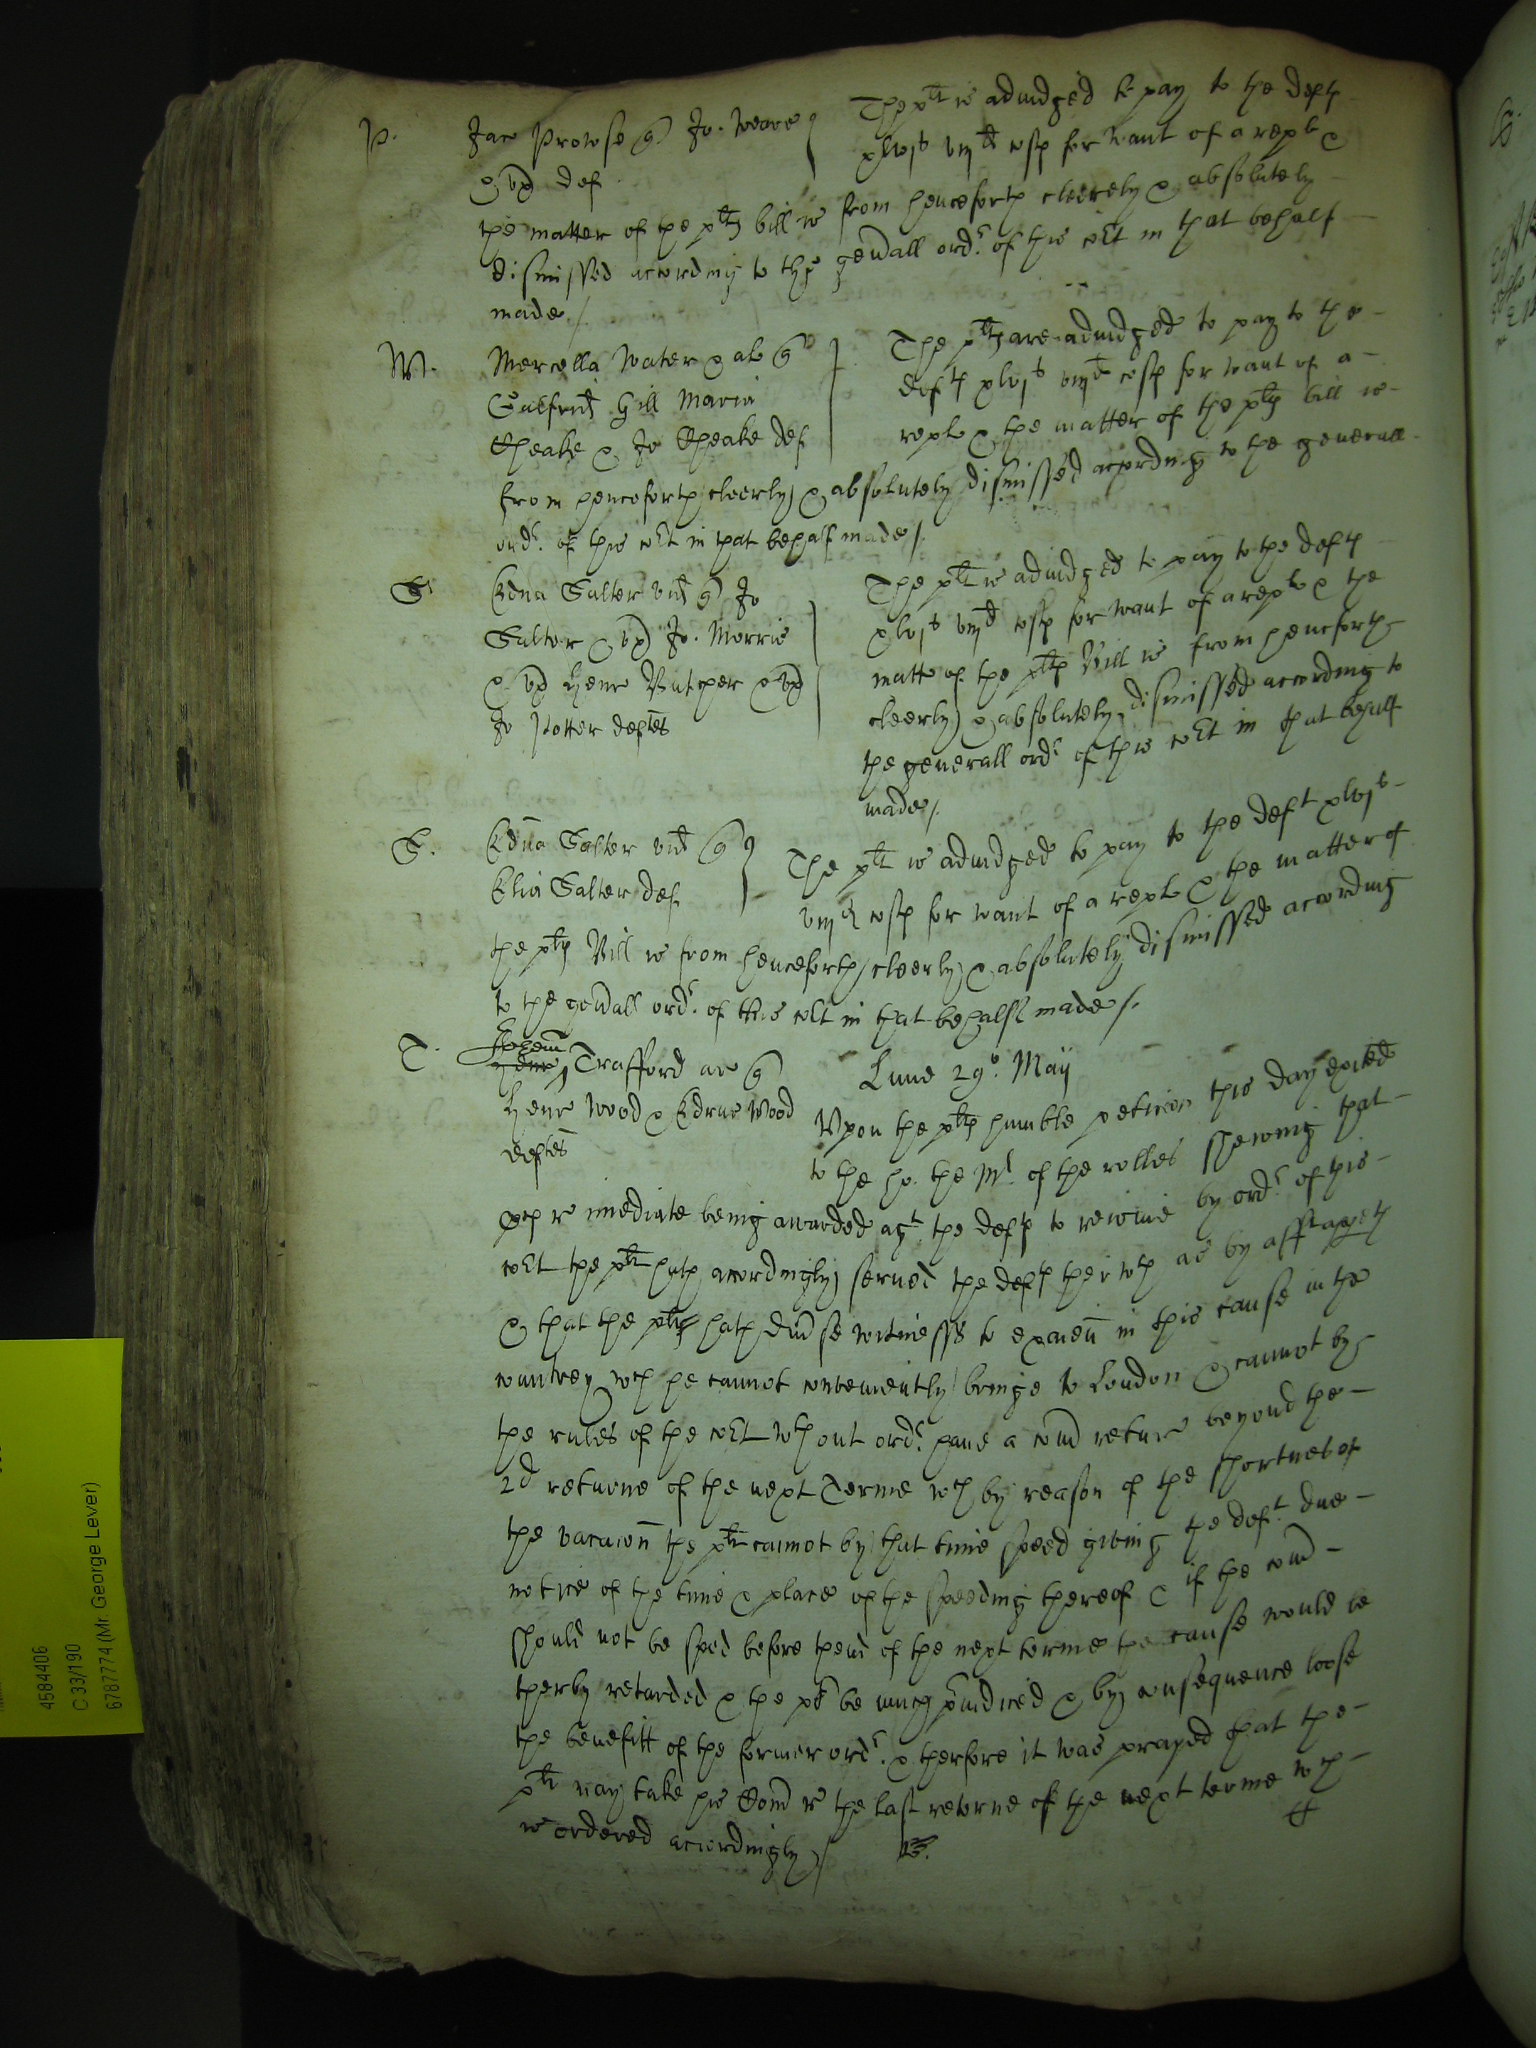 P. Jac Prowse q Jo. Weare
& ux def
The plt is adiudged to pay to the defts
xlvjs viijd costs for want of a repl &
the matter of the plts bill is from henceforth cleerely & absolutely
dismissed according to the gen'all ordr. of this co't in that behalf
made /.
M. Mercella Water & al q
Galfrid Gill Maria
Speake & Jo Speake def
The plts are adiudged to pay to the
defts xlvjs viijd costs for want of a
repl & the matter of the plts bill is
from henceforth cleerly & absolutely dismissed according to the generall
ordr. of this co't in that behalf made /.
S. Edna Salter vid q Jo
Salter & ux Jo. Morris
& ux Henr Butcher & ux
Jo Potter defтes
The plt is adiudged to pay to the defts
xlvjs viijd costs for want of a repl & the
matter of the plts Bill is from henceforth
cleerly & absolutely dismissed according to
the generall ordr of this co't in that behalf
made /.
S. Edna Salter vid q
Elia Salter def.
The plt is adiudged to pay to the deft xlvjs
viijd costs for want of a repl & the matter of
the plts Bill is from henceforth cleerly & absolutely dismissed according
to the gen'all ordr. of this co't in that behalf made /.
T. Trafford ar q
Henr Wood & Wood
deftes
Lune 29o. Maij
Upon the plts humble peticion this day exited
to the ho. the Mr. of the rolles shewing that
imediate being awarded agt. the defts to reioine by ordr. of this
co't the plt hath accordingly served the defts therwth as by aff appeth
& that the plt hath divse witnesses to examen in this cause in the
countrey wch he cannot conveniently bringe to London & cannot by
the rules of the co't wthout ordr. have a com returne beyond the
2d returne of the next Terme wch by reason of the shortnes of
the vacacion the plt cannot by that time speed giving the deft. due
notice of the time & place of the speeding thereof & if the com
should not be sped before thend of the next terme the cause would be
therby retarded & the plt be much preiudiced & by consequence loose
the benefitt of the former ordr. & therfore it was prayed that the
plt may take his Com r the last returne of the next terme wch
is ordered accordingly /
4584406
C 33/190
6787774 (Mr. George Lever)